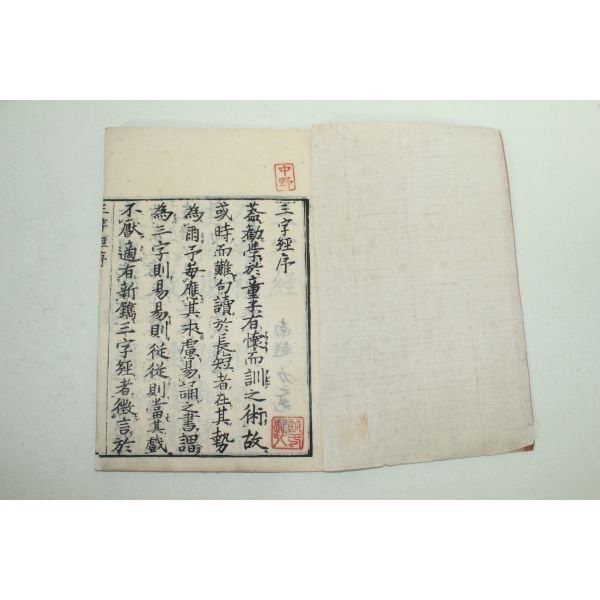 中野
三字經序
蓋勧学於童子有懐而訓之術故
或時而難句讀於長短者在其勢
為爾予毎應其来慮易誦之書謂
為三字則易易則從從則當其戯
不厭適有新鐫三字經者徴言於
三字經序